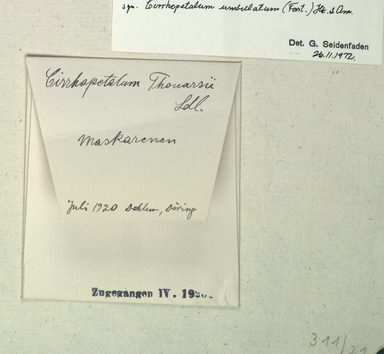 syn. Cirrhopetalum umbellatum (Forst.) Hk. & Arn.
Det. G. Seidenfaden
26.11.1972.
Cirrhopetalum Thouarsii
Ldl.
Maskarenen
Juli 1920 Dahlem, Döring
Zugegangen IV. 
311/21